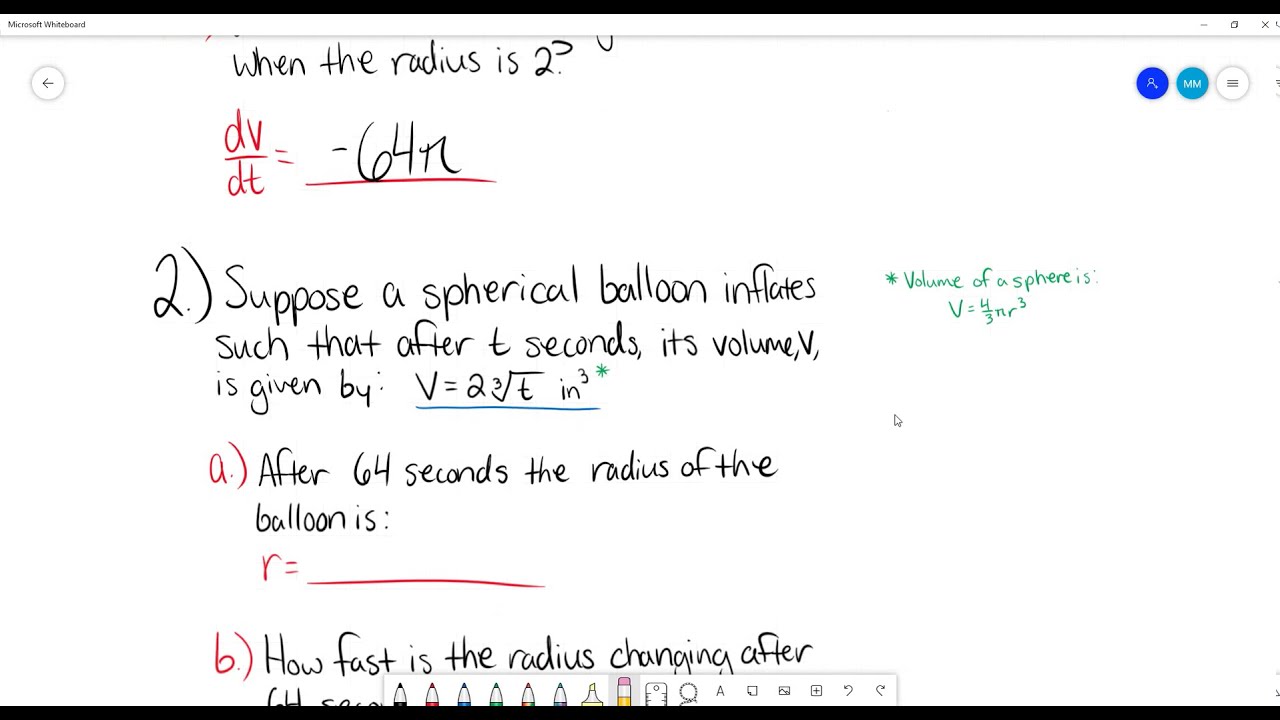 Microsoft Whiteboard
when the radius is 2?
MM
dv/dt = -64π
2.) Suppose a spherical balloon inflates
such that after t seconds, its volume, V,
is given by: V = 2∛t in³ *
* Volume of a sphere is:
V = 4/3 πr³
a.) After 64 seconds the radius of the
balloon is:
r =
b.) How fast is the radius changing after
64
A